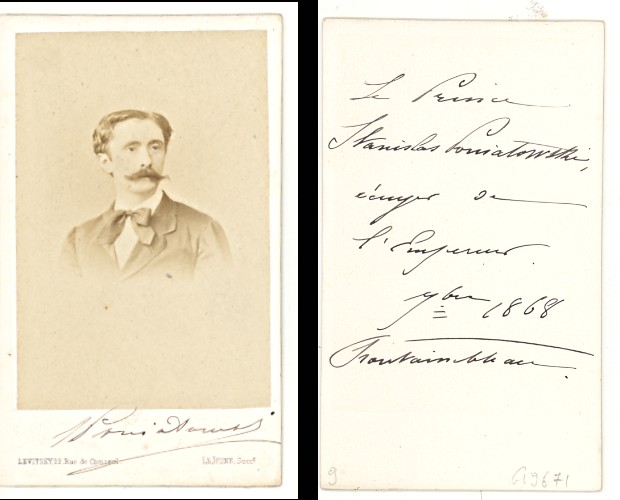 Poniatowski
LEVITSKY 22, Rue de Choiseul
LEJEUNE, Succr
Le Prince
Stanislas Poniatowski,
écuyer de
l'Empereur.
9bre 1868
Fontainebleau.
9
G19671